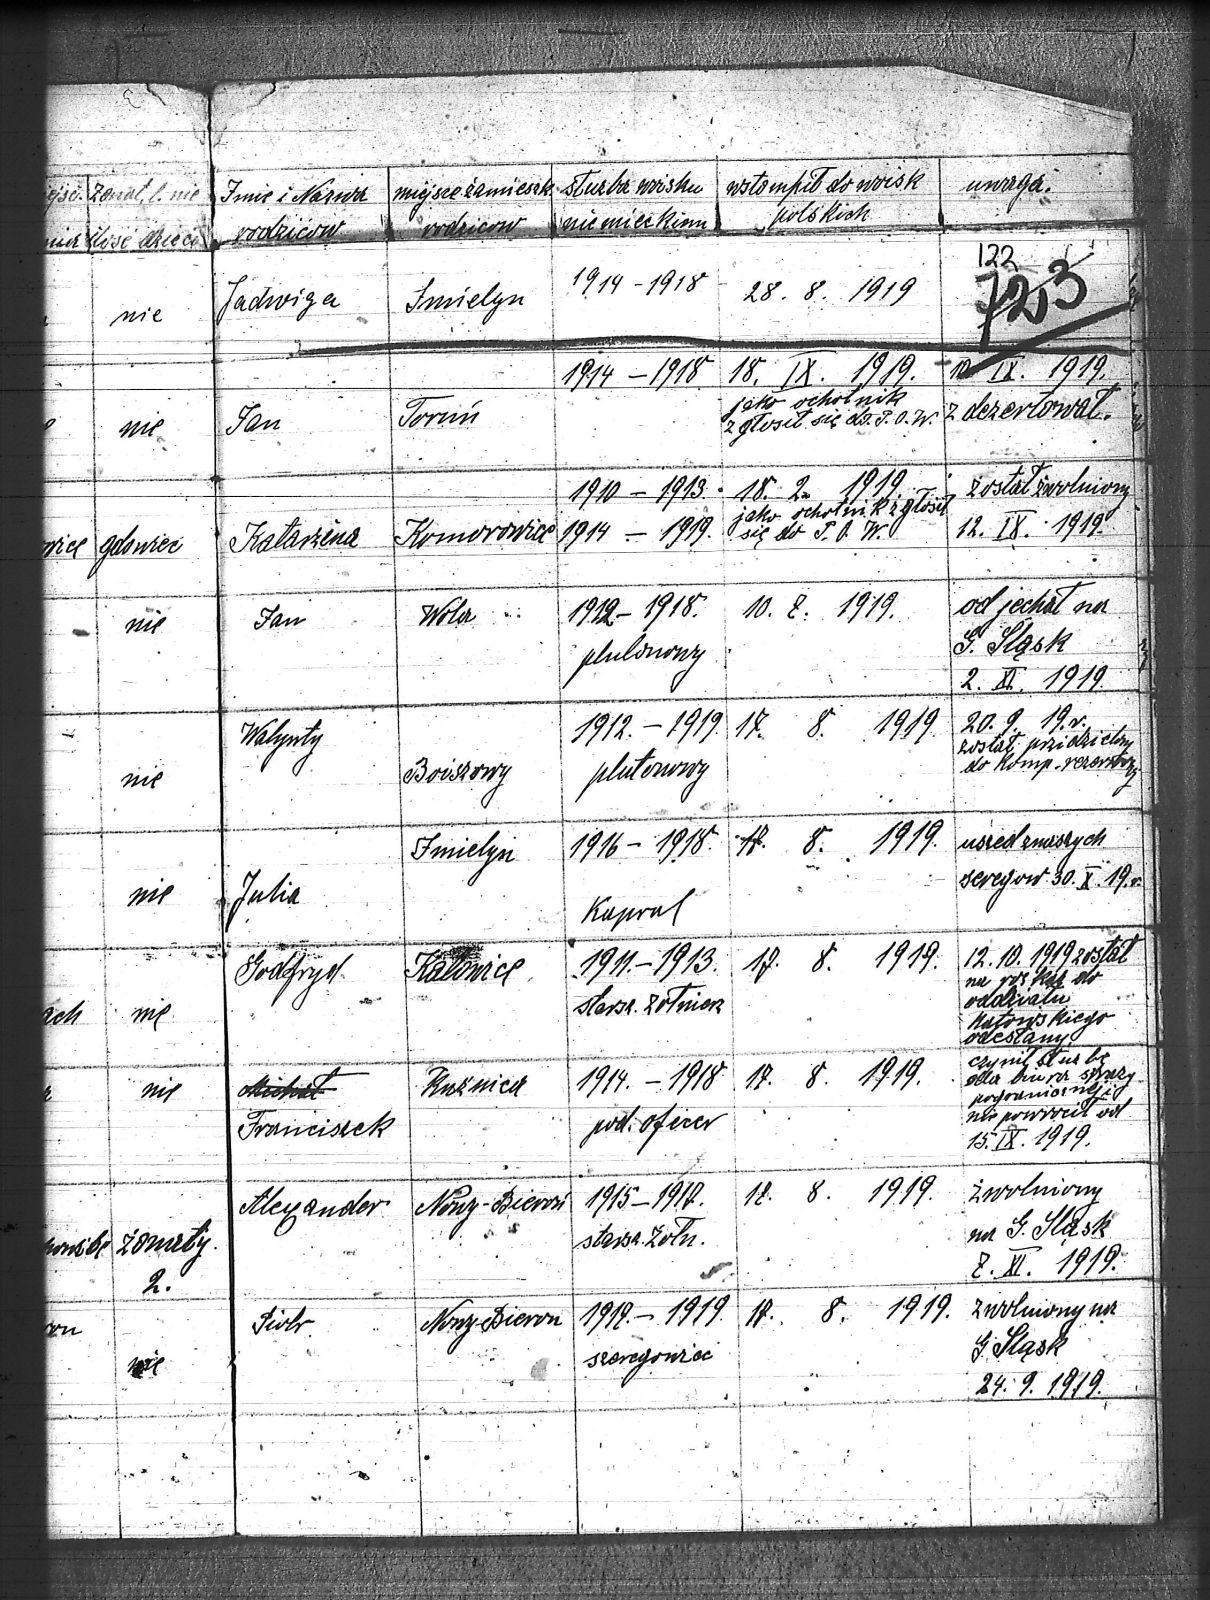 żonat, l. nie Imie i Nazwa miejsce zamieszk. służba wojsku wstompił do wojsk uwaga.
ilość dzieci rodziców rodziców niemieckim polskich
122
nie Jadwiga Imielyn 1914 - 1918 28. 8. 1919 123
1914 - 1918 18. IX. 1919. IX. 1919.
nie Jan Toruń jako ochotnik z dezertował.
zgłosił się do P.O.W.
1910 - 1913. 18. 2. 1919. został zwolniony
wice gdowiec Katarzina Komorowice 1914 - 1919. jako ochotnik zgłosił 12. IX. 1919.
się do P. O. W.
nie Jan Wola 1912 - 1918. 10. 7. 1919. od jechał na
plutonowy G. Śląsk
2. XI. 1919.
Walynty 1912. - 1919. 17. 8. 1919 20. 9. 19.r.
został przidzielny
nie Boiszowy plutonowy do komp. rezerwowy
Imielyn 1916 - 1918. 17. 8. 1919. uszed znaszych
nie Julia Kapral szeregow 30. X. 19.r.
Godfryd Katowice 1911. - 1913. 17. 8. 1919. 12. 10. 1919 został
na roskaz do
ach nie starsz. żołnierz oddziału
Katowskiego
odesłany
nie Michał Kuźnica 1914. - 1918 17. 8. 1919. czynił służbę
dla biura straży
pogranicznej i
Franciszek pod. oficer nie powrócił od
15. IX. 1919.
Alexander Nowy-Bieroń 1915 - 1917. 17. 8. 1919. zwolniony
żonaty. starsz. żołn. na G. Śląsk
2. 7. XI. 1919.
ron Piotr Nowy-Bieron 1917. - 1919. 17. 8. 1919. zwolniony na
nie szeregowiec G. Śląsk
24. 9. 1919.